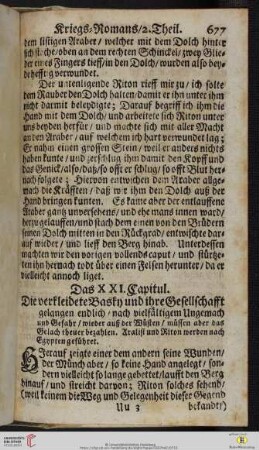 Kriegs-Romans/2. Theil. 677
dem listigen Araber/ welcher mit dem Dolch hinter
sich stache/ oben an dem rechten Schinckel/ zwey Glie-
der eines Fingers tieff/ in den Dolch/ wurden also bey-
de hefftig verwundet.
Der untenligende Riton rieff mir zu/ ich solte
den Rauber den Dolch halten/ damit er ihn unter ihm
nicht darmit beleydigte; Darauf begriff ich ihm die
Hand mit dem Dolch/ und arbeitete sich Riton unter
uns beyden herfür/ und machte sich mit aller Macht
an den Araber/ auf welchem ich hart verwundet lag;
Er nahm einen grossen Stein/ weil er anders nichts
haben kunte/ und zerschlug ihm damit den Kopff und
das Genick/ also/ daß/ so offt er schlug/ so offt Blut her-
nach folgete; Hiervon entwichen dem Araber allge-
mach die Kräfften/ daß wir ihm den Dolch auß der
Hand bringen kunten. Es kame aber der entlauffene
Araber gantz unversehens/ und ehe mans innen ward/
herzu gelauffen/ und stach dem einen von den Brüdern
seinen Dolch mitten in den Rückgrad/ entwischte dar-
auf wieder/ und lieff den Berg hinab. Unterdessen
machten wir den vorigen vollends caput/ und stürtze-
ten ihn hernach todt über einen Felsen herunter/ da er
vielleicht annoch liget.
Das XXI. Capitul.
Die verkleidete Basky und ihre Gesellschafft
gelangen endlich/ nach vielfältigem Ungemach
und Gefahr/ wieder auß der Wüsten/ müssen aber das
Gelach theuer bezahlen. Aralifi und Riton werden nach
Egypten geführet.
Hierauf zeigte einer dem andern seine Wunden/
der Münch aber/ so keine Hand angelegt/ son-
dern vielleicht so lange gebettet/ laufft den Berg
hinauf/ und streicht darvon; Riton solches sehend/
(weil keinem die Weg und Gelegenheit dieser Gegend
Uu 3 bekandt/)